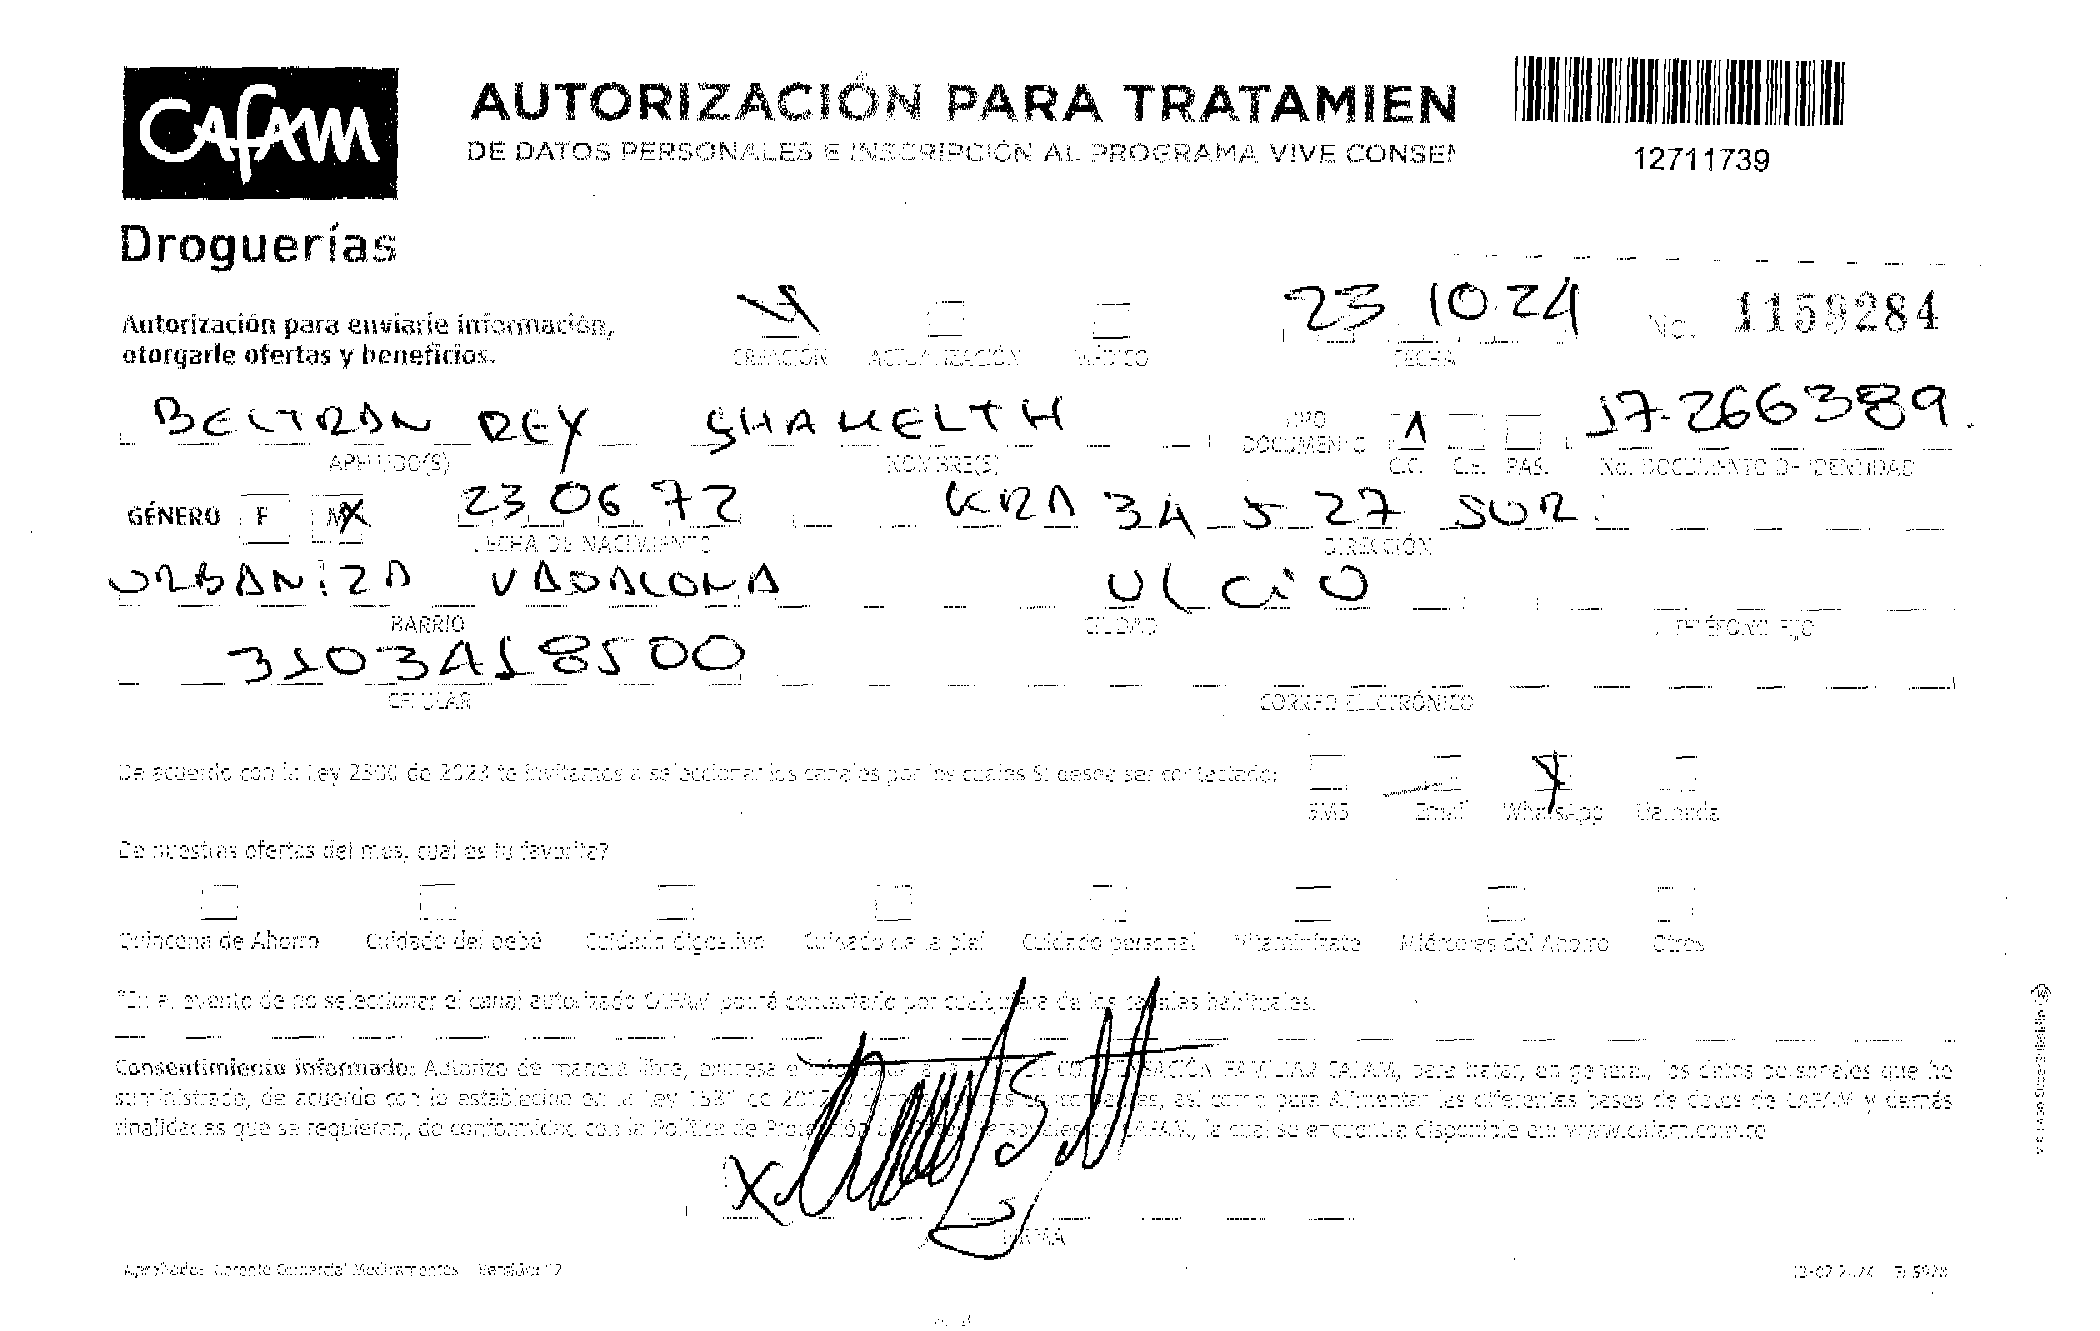 CAFAM
Droguerías
AUTORIZACIÓN PARA TRATAMIEN
DE DATOS PERSONALES E INSCRIPCIÓN AL PROGRAMA VIVE CONSEN
12711739
Autorización para enviarle información,
otorgarle ofertas y beneficios.
CREACIÓN ACTUALIZACIÓN MÉDICO
23 10 24
FECHA
No. 1159284
BELTRAN REY
APELLIDO(S) NOMBRE(S)
TIPO DOCUMENTO
C.C. C.E. PAS.
17.266389
No. DOCUMENTO DE IDENTIDAD
GÉNERO F M
23 06 72
FECHA DE NACIMIENTO
KRA 34 5 27 SUR
DIRECCIÓN
URBANIZA
BARRIO
V/CIO
CIUDAD TELÉFONO FIJO
3103418500
CELULAR CORREO ELECTRÓNICO
De acuerdo con la Ley 2300 de 2023 te invitamos a seleccionar los canales por los cuales SI desea ser contactado:
SMS Email WhatsApp Llamada
De nuestras ofertas del mes, cual es tu favorita?
Quincena de Ahorro Cuidado del bebé Cuidado digestivo Cuidado de la piel Cuidado personal Vitamínizate Miércoles del Ahorro Otros
*En el evento de no seleccionar el canal autorizado CAFAM podrá contactarlo por cualquiera de los canales habituales.
Consentimiento informado: Autorizo de manera libre, expresa e CAJA DE COMPENSACIÓN FAMILIAR CAFAM, para tratar, en general, los datos personales que he
suministrado, de acuerdo con lo establecido en la Ley 1581 de 2012 y demás normas concordantes, así como para Alimentar las diferentes bases de datos de CAFAM y demás
finalidades que se requieran, de conformidad con la Política de Protección de Datos Personales de CAFAM, la cual se encuentra disponible en: www.cafam.com.co
X
FIRMA
Aprobado: Gerente Comercial Medicamentos Versión: 12